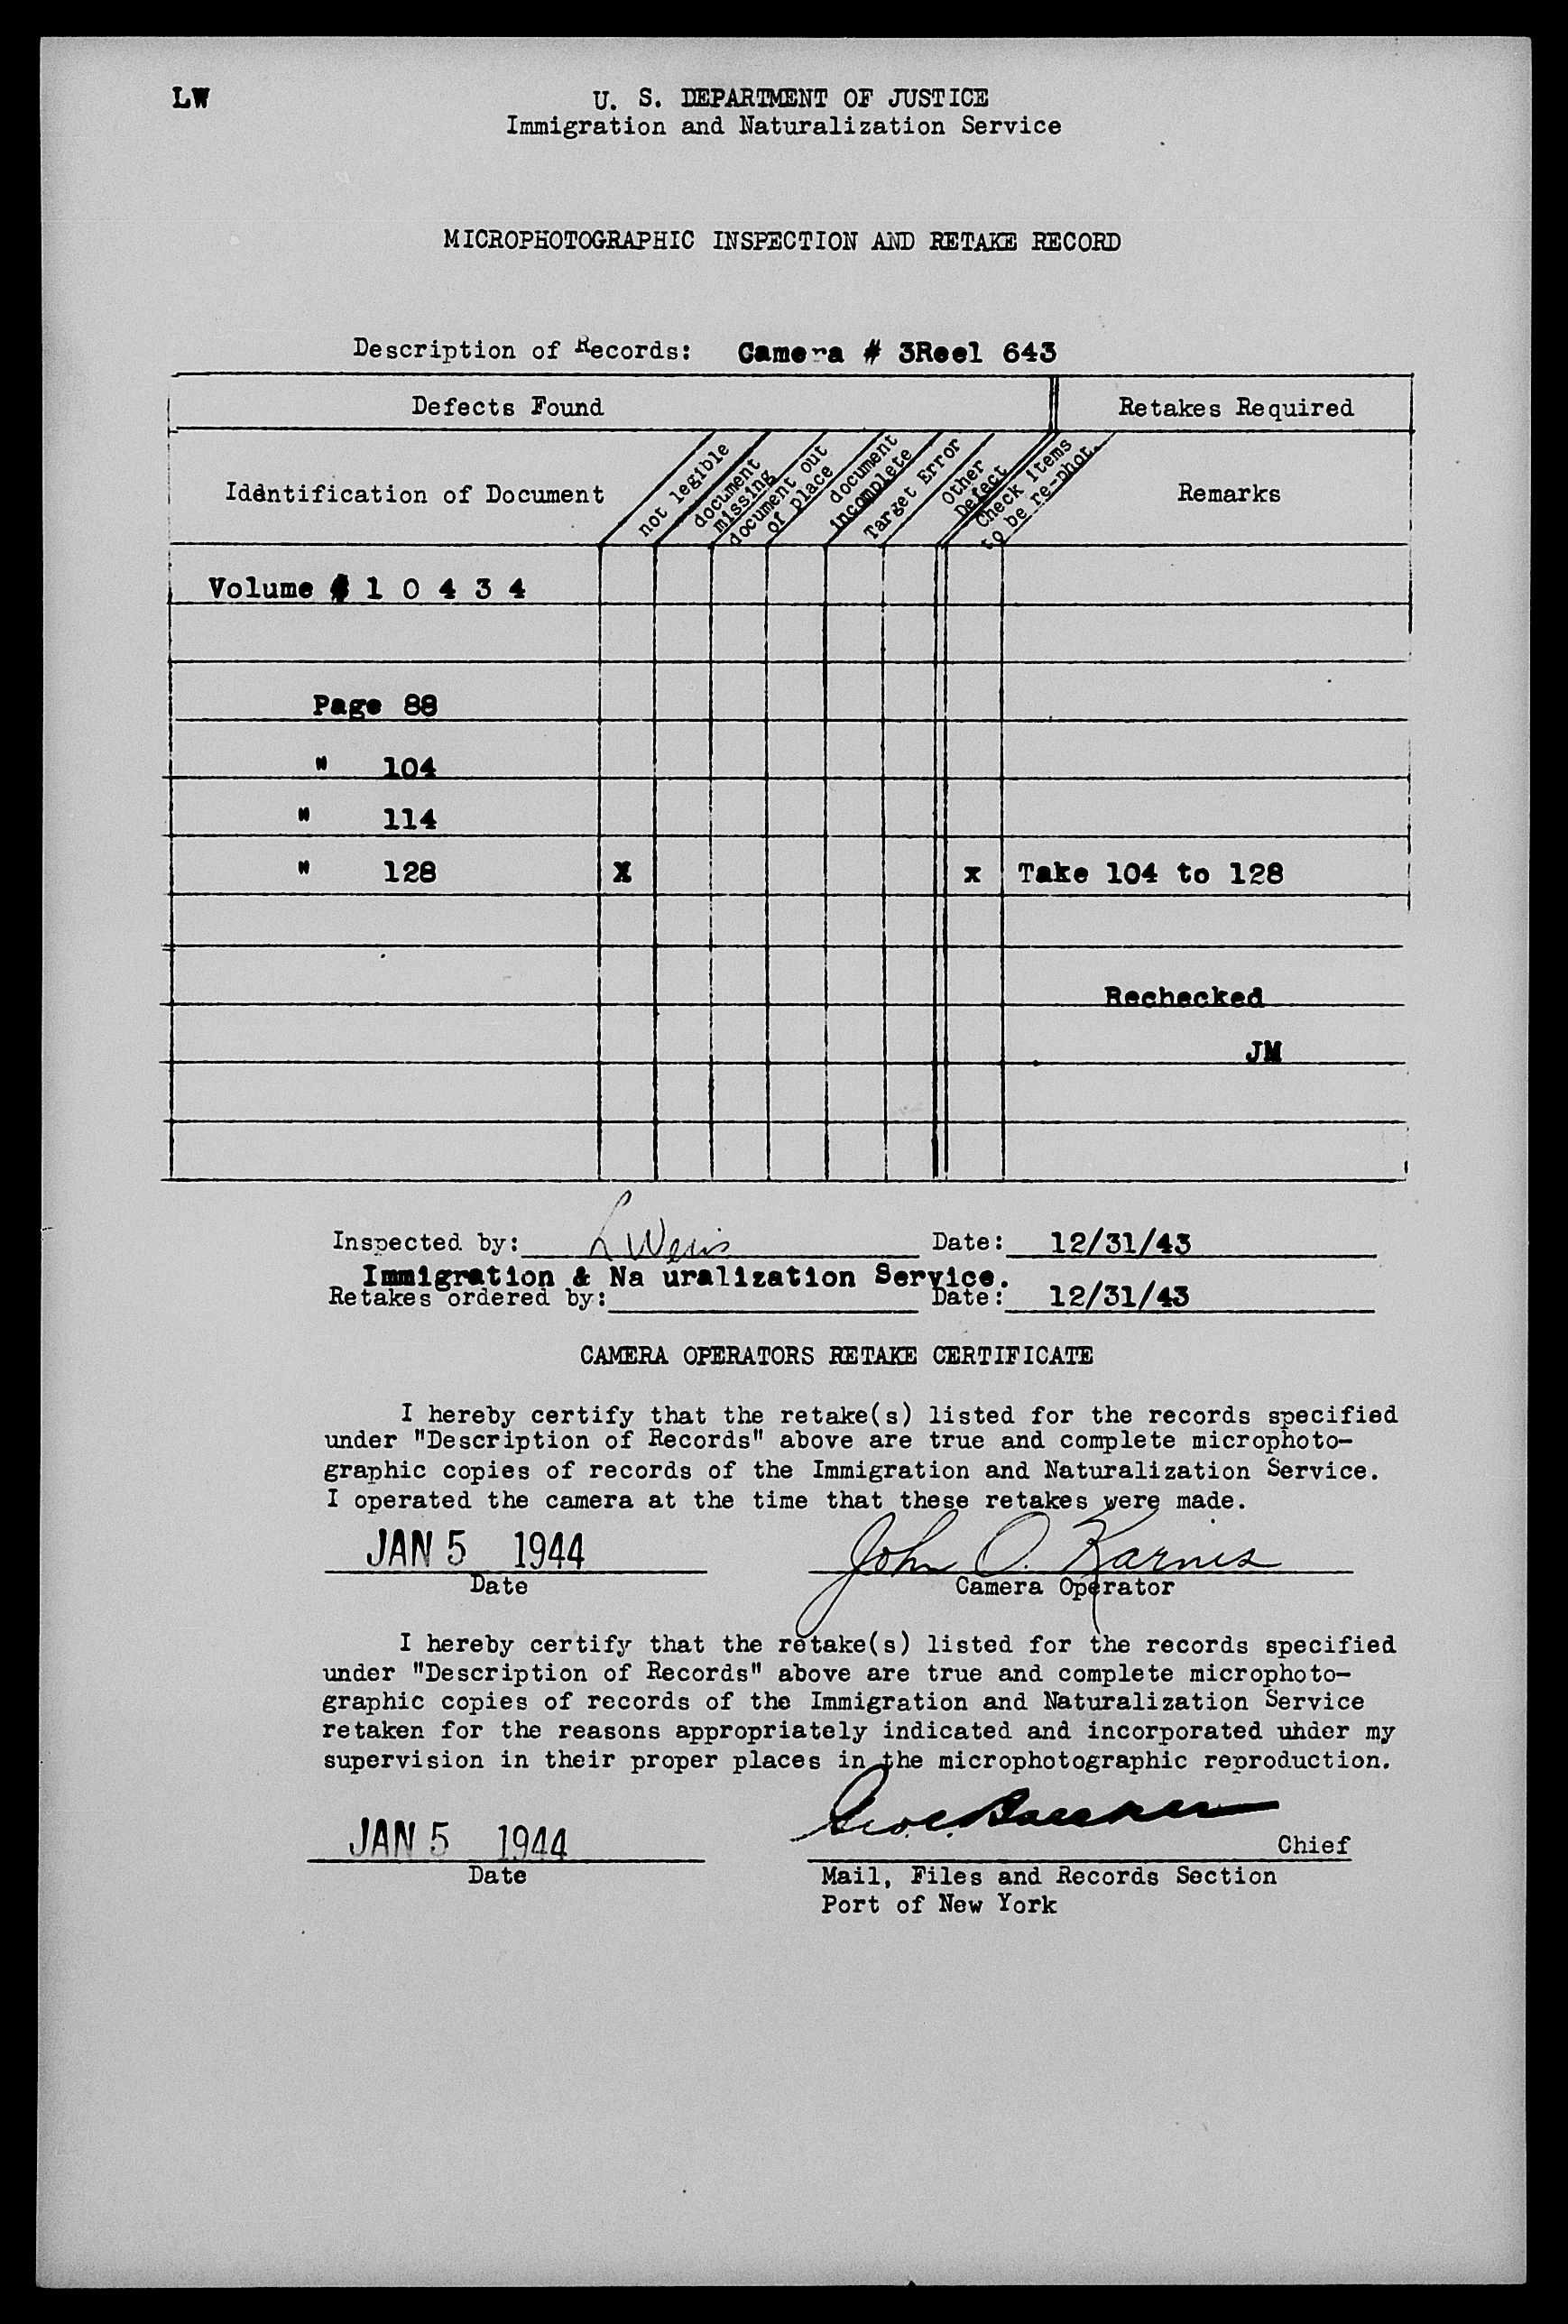 LW
U. S. DEPARTMENT OF JUSTICE
Immigration and Naturalization Service
MICROPHOTOGRAPHIC INSPECTION AND RETAKE RECORD
Description of Records: Camera # 3Reel 643
Defects Found Retakes Required
Identification of Document
not legible
document missing
document out of place
document incomplete
Target Error
Other Defect
Check items to be re-phot.
Remarks
Volume # 1 0 4 3 4
Page 88
" 104
" 114
" 128 X x Take 104 to 128
Rechecked
JM
Inspected by: L Date: 12/31/43
Immigration & Na uralization Service.
Retakes ordered by: Date: 12/31/43
CAMERA OPERATORS RETAKE CERTIFICATE
I hereby certify that the retake(s) listed for the records specified
under "Description of Records" above are true and complete microphoto-
graphic copies of records of the Immigration and Naturalization Service.
I operated the camera at the time that these retakes were made.
JAN 5 1944 John O. Karnes
Date Camera Operator
I hereby certify that the retake(s) listed for the records specified
under "Description of Records" above are true and complete microphoto-
graphic copies of records of the Immigration and Naturalization Service
retaken for the reasons appropriately indicated and incorporated under my
supervision in their proper places in the microphotographic reproduction.
JAN 5 1944 Chief
Date Mail, Files and Records Section
Port of New York